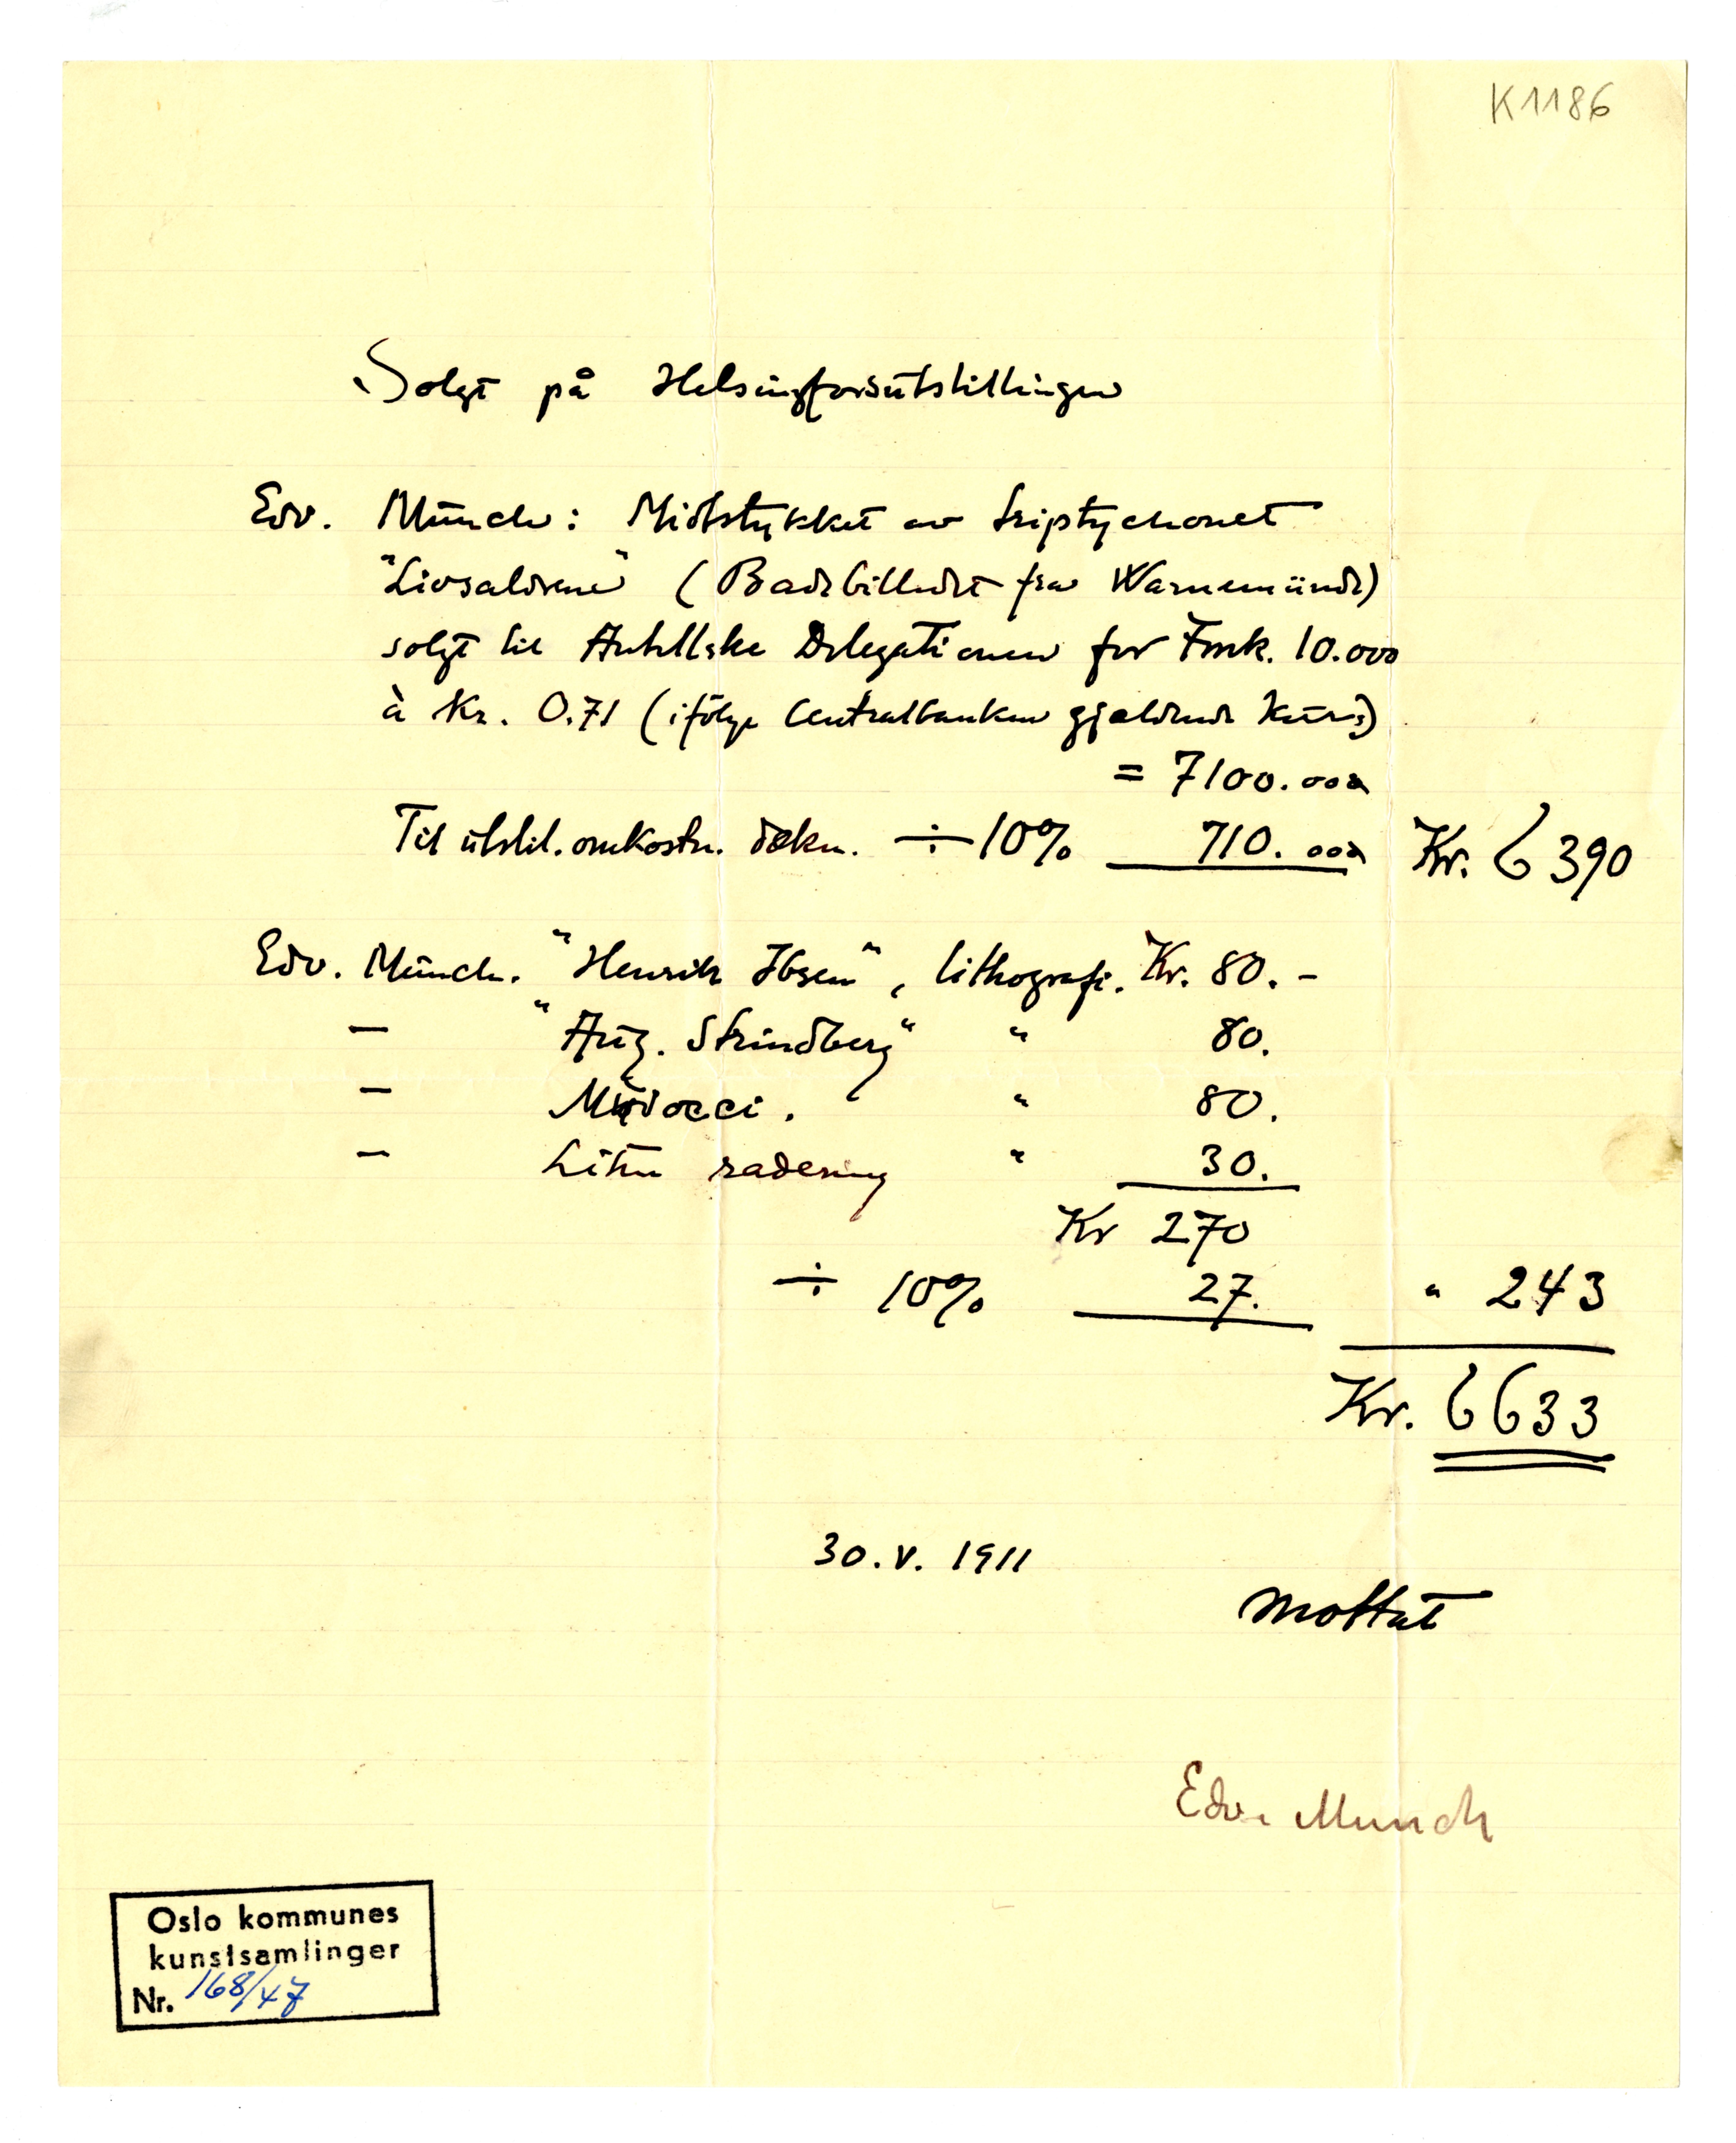 K1186
Solgt på Helsingforsutstillingen
Edv. Münch: Midtstykket av triptychonet
"Livsaldrene" (Badebilledet fra Warnemünde)
solgt til Antellske Delegationen for Fmk. 10.000
à Kr. 0.71 (ifölge Centralbanken gjældende kurs)
= 7100.00
Til utstil. omkostn. dekn. ÷ 10% 710.00 Kr. 6390
Edv. Münch. "Henrik Ibsen", lithografi. Kr. 80.-
— "Aug. Strindberg" " 80.
— Mudocci. " 80.
— Liten radering " 30.
Kr 270
÷ 10% 27. " 243
Kr. 6633
30.V. 1911
Mottat
Edv. Munch
Oslo kommunes
kunstsamlinger
Nr. 168/47